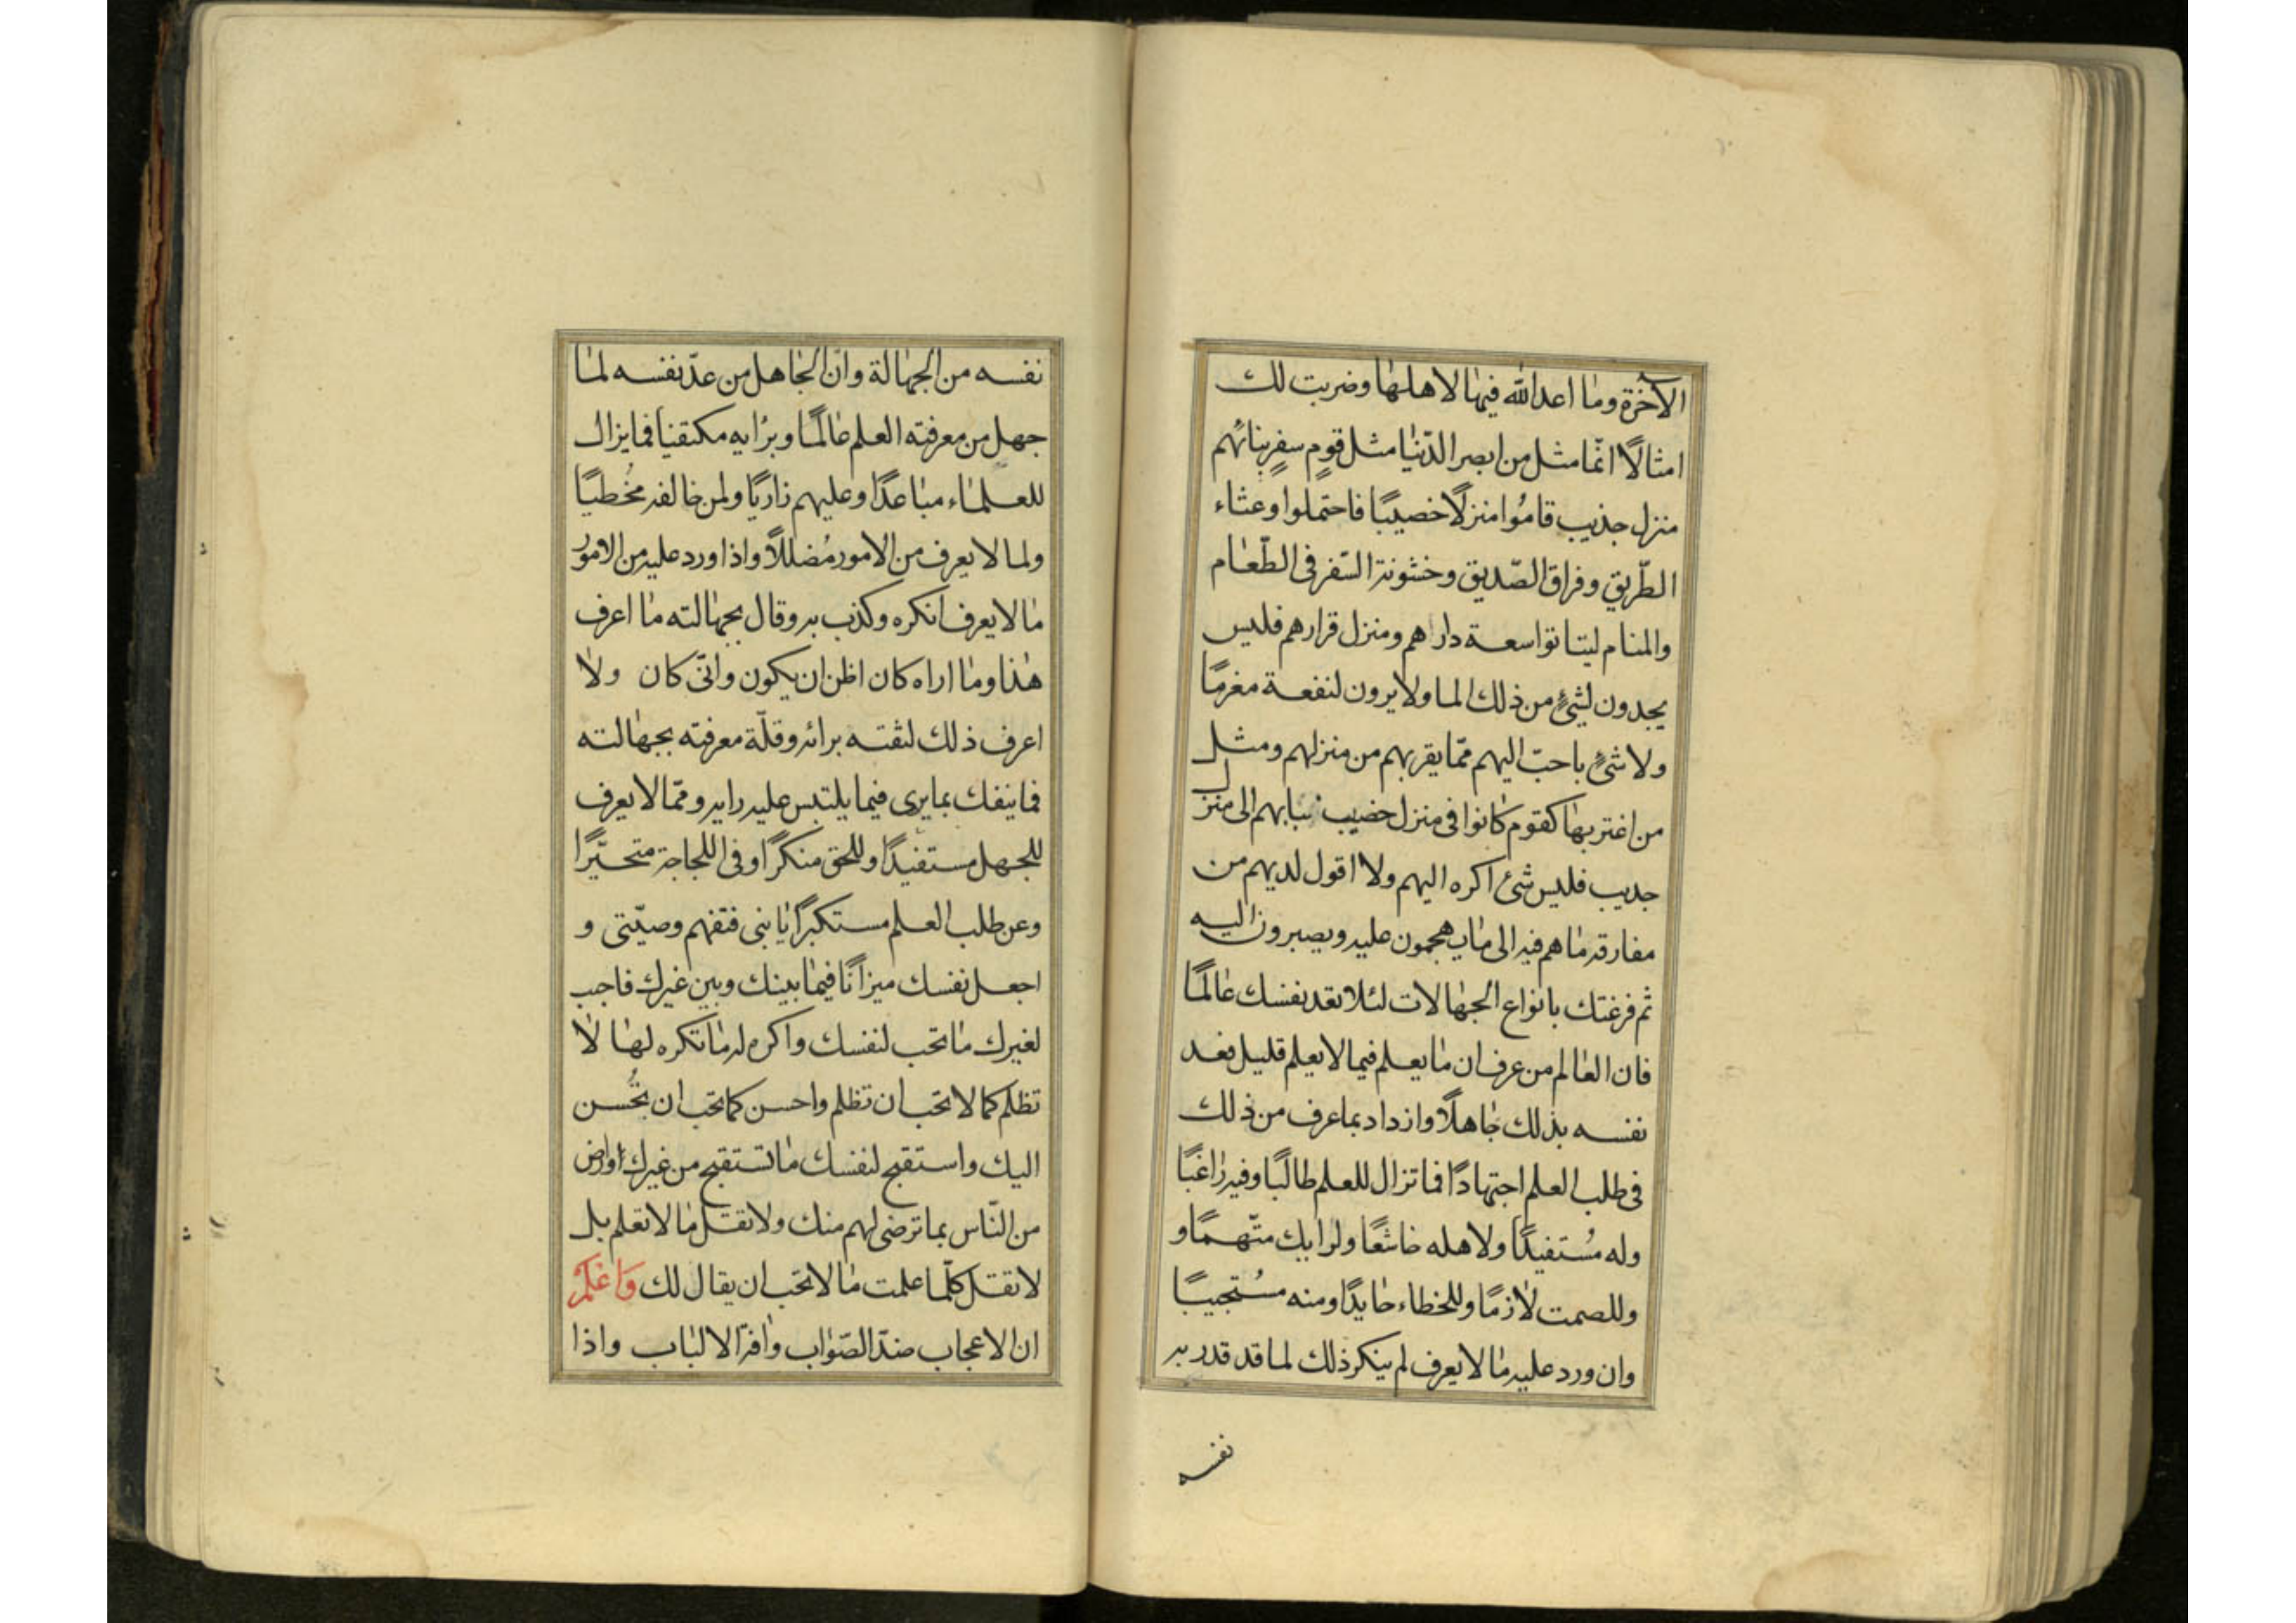 الآخرة وما اعد الله فيها لاهلها وضربت لك
امثالًا انّما مثل من ابصر الدّنيا مثل قومٍ سفرٍ بنا بهم
منزل جذيب قاموا منزلًا خصيبًا فاحتملوا وعثاء
الطّريق وفراق الصّديق وخشونة السّفر فى الطّعام
والمنام ليتا توا سعة دارهم ومنزل قرارهم فليس
يجدون لشئٍ من ذلك الما ولا يرون لنفعة مغرمًا
ولا شئٍ باحبّ اليهم ممّا يقربهم من منزلهم ومثل
من اغتر بها كقوم كانوا فى منزل خصيب نبا بهم الى منزل
جديب فليس شئ اكره اليهم ولا اقول لديهم من
مفارقة ما هم فيه الى ما يهجمون عليه ويصيرون اليه
ثم فرغتك بانواع الجهالات لئلا تعد نفسك عالمًا
فان العالم من عرف ان ما يعلم فيما لا يعلم قليل فعد
نفسه بذلك جاهلًا وازداد بما عرف من ذلك
فى طلب العلم اجتهادًا فما تزال للعلم طالبًا وفيه راغبًا
وله مُستفيدًا ولاهله خاشعًا ولرايك متّهمًا و
وللصمت لازمًا وللخطاء حايدًا ومنه مُستجيبًا
وان ورد عليه ما لا يعرف لم ينكر ذلك لما قد قدر به
نفسه
نفسه من الجهالة وانّ الجاهل من عدّ نفسه لما
جهل من معرفته العلم عالمًا وبرايه مكتفيا فما يزال
للعلماء مباعدًا وعليهم زاريًا ولمن خالفه مخُطيًا
ولما لا يعرف من الامور مُضللًا واذا ورد عليه من الامور
ما لا يعرف انكره وكذب به وقال بجهالته ما اعرف
هذا وما اراه كان اظن ان يكون وانّى كان ولا
اعرف ذلك لثقته برائه وقلّة معرفته بجهالته
فما ينفك بما يرى فيما يلتبس عليه رايه وممّا لا يعرف
للجهل مستفيدًا وللحق منكرًا وفى اللجاجة متحيّرًا
وعن طلب العلم مستكبرًا يا بنى فتفهم وصيّتى و
اجعل نفسك ميزانًا فيما بينك وبين غيرك فاحبب
لغيرك ما تحب لنفسك واكره له ما تكره لها لا
تظلم كما لا تحب ان تظلم واحسن كما تحب ان تُحسن
اليك واستقبح لنفسك ما تستقبح من غيرك وارض
من النّاس بما ترضى لهم منك ولا تقل ما لا تعلم بل
لا تقل كلّما علمت ما لا تحب ان يقال لك وَاعْلَمْ
ان الاعجاب ضدّ الصّواب وافة الالباب واذا